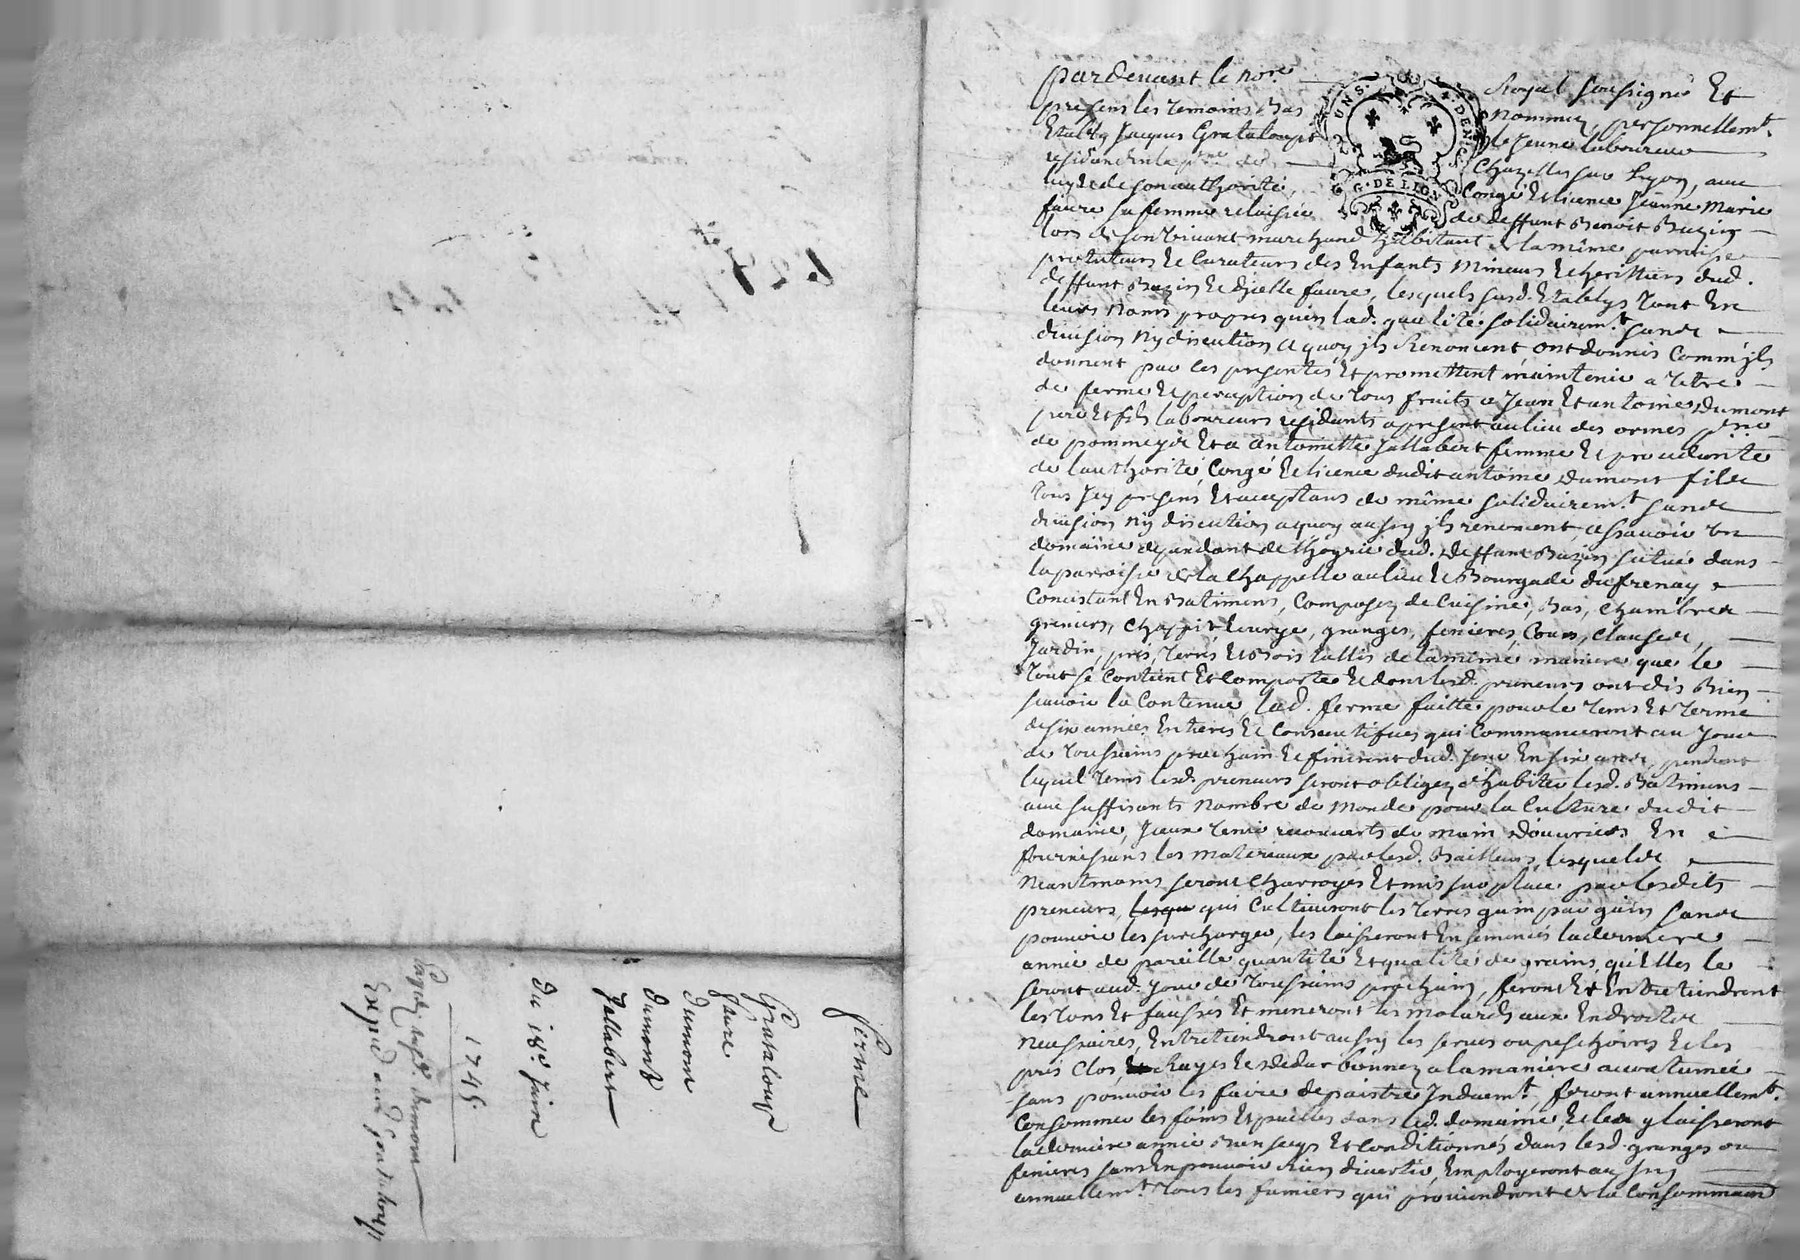 ferme
Grataloup
faure
dumon
dumont
Jallabert
du 18e. Juin
1745.
Expédié aud. Grataloup
pardevant le nore. Royal soussigné Et
presens les temoins Bas nommez, personnellemt.
Etably Jacques Grataloup le Jeune laboureur
residant en la psse. de Chazelles sur Lyon, avec
luy et de son authorité, Congé Et licence Jeanne Marie
faure sa femme relaissée de deffunt Benoit Bazin
lors de son vivant marchand habitant de la même parroisse
protuteurs Et Curateurs des Enfants Mineurs Et heritiers dud.
deffunt Bazin Et d'icelle faure, lesquels susd. Etablys tant En
leurs noms propres qu'en lad. qualité solidairemt. sans
division ny discution a quoy ils Renoncent, ont donnés Comm'ils
donnent par ces presentes Et promettent maintenir a titre
de ferme Et perception de tous fruits a Jean Et antoine Dumont
pere Et fils laboureurs residants a present au lieu des ormes psse.
de pommeys Et a antoinette Jallabert femme Et procedante
de l'authorité, Congé Et licence dudit antoine Dumont fils
tous Icy presens Et acceptans de même solidairemt. sans
division ny discution a quoy aussy ils renoncent, a sçavoir un
domaine dependant de l'hoyrie dud. deffunt Bazin situé dans
la parroisse de la Chappelle au lieu Et Bourgade du frenay
Consistant En Batimens, Composez de Cuisine, Bas, Chambres
greniers, Chappit Ecurye, granges, fenieres, Cour, Clauses,
Jardin, prés, terres Et Bois taillis de la même maniere que le
tout se Contient Et Comporte Et dont lesd. preneurs ont dis Bien
sçavoir la Contenue, lad. ferme faitte pour le tems Et terme
de six années Entieres Et Consecutifves qui Commanceront au Jour
de toussains prochain Et finiront dud. Jour En six ans, pendant
lequel tems lesd. preneurs seront obligez d'habiter lesd. Batimens
avec suffisants Nombre de Monde pour la Culture dudit
domaine, Iceux tenir recouverts de main d'ouvriers En
fournissans les materiaux par lesd. Bailleurs, lesquels
Neantmoins seront Charroyés Et mis sur place par lesdits
preneurs, qui Cultiveront les terres guin par guin sans
pouvoir les surcharger, les laisseront Ensemencés la derniere
année de pareille quantité Et qualité de grains, qu'Elles le
seront aud. Jour de toussains prochain, feront Et Entretiendront
les tons Et fausses Et meneront les motards aux Endroits
Necessaires, Entretiendront aussy les serves ou peschoires Et les
prés Clos, Rayes Et a la maniere accoutumée
sans pouvoir les faire depaistre Induemt., feront annuellemt.
Consommer les foins Et pailles dans led. domaine, Et les y laisseront
la derniere année Bien secqs Et Conditionnés dans lesd. granges ou
fenieres sans En pouvoir Rien divertir, Employeront aussy
annuellemt. tous les fumiers qui proviendront de la Consommaon